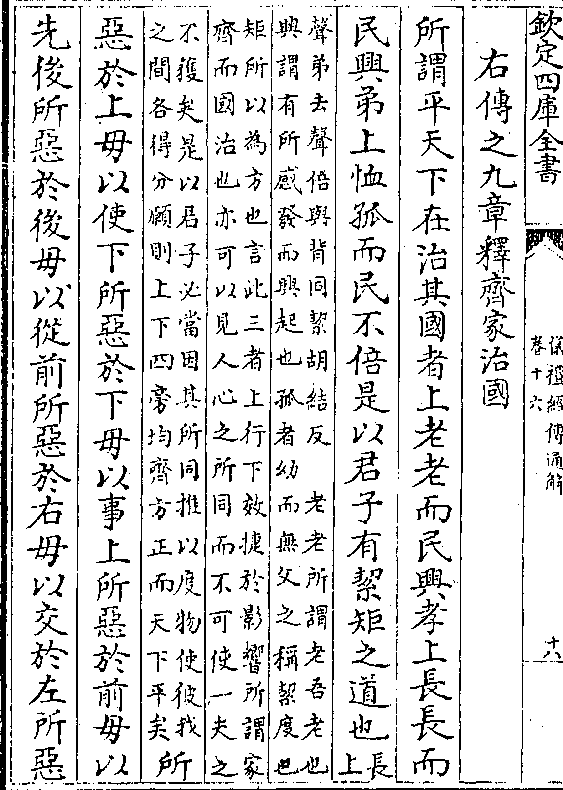 欽定四庫全書
儀禮經傳通解
卷十六
十八
右傳之九章釋齊家治國
所謂平天下在治其國者上老老而民興孝上長長而
民興弟上恤孤而民不倍是以君子有絜矩之道也
長
上
聲弟去聲倍與背同絜胡結反 老老所謂老吾老也
興謂有所感發而興起也孤者幼而無父之稱絜度也
矩所以為方也言此三者上行下效捷於影響所謂家
齊而國治也亦可以見人心之所同而不可使一夫之
不獲矣是以君子必當因其所同推以度物使彼我
之間各得分願則上下四旁均齊方正而天下平矣
所
惡於上毋以使下所惡於下毋以事上所惡於前毋以
先後所惡於後毋以從前所惡於右毋以交於左所惡